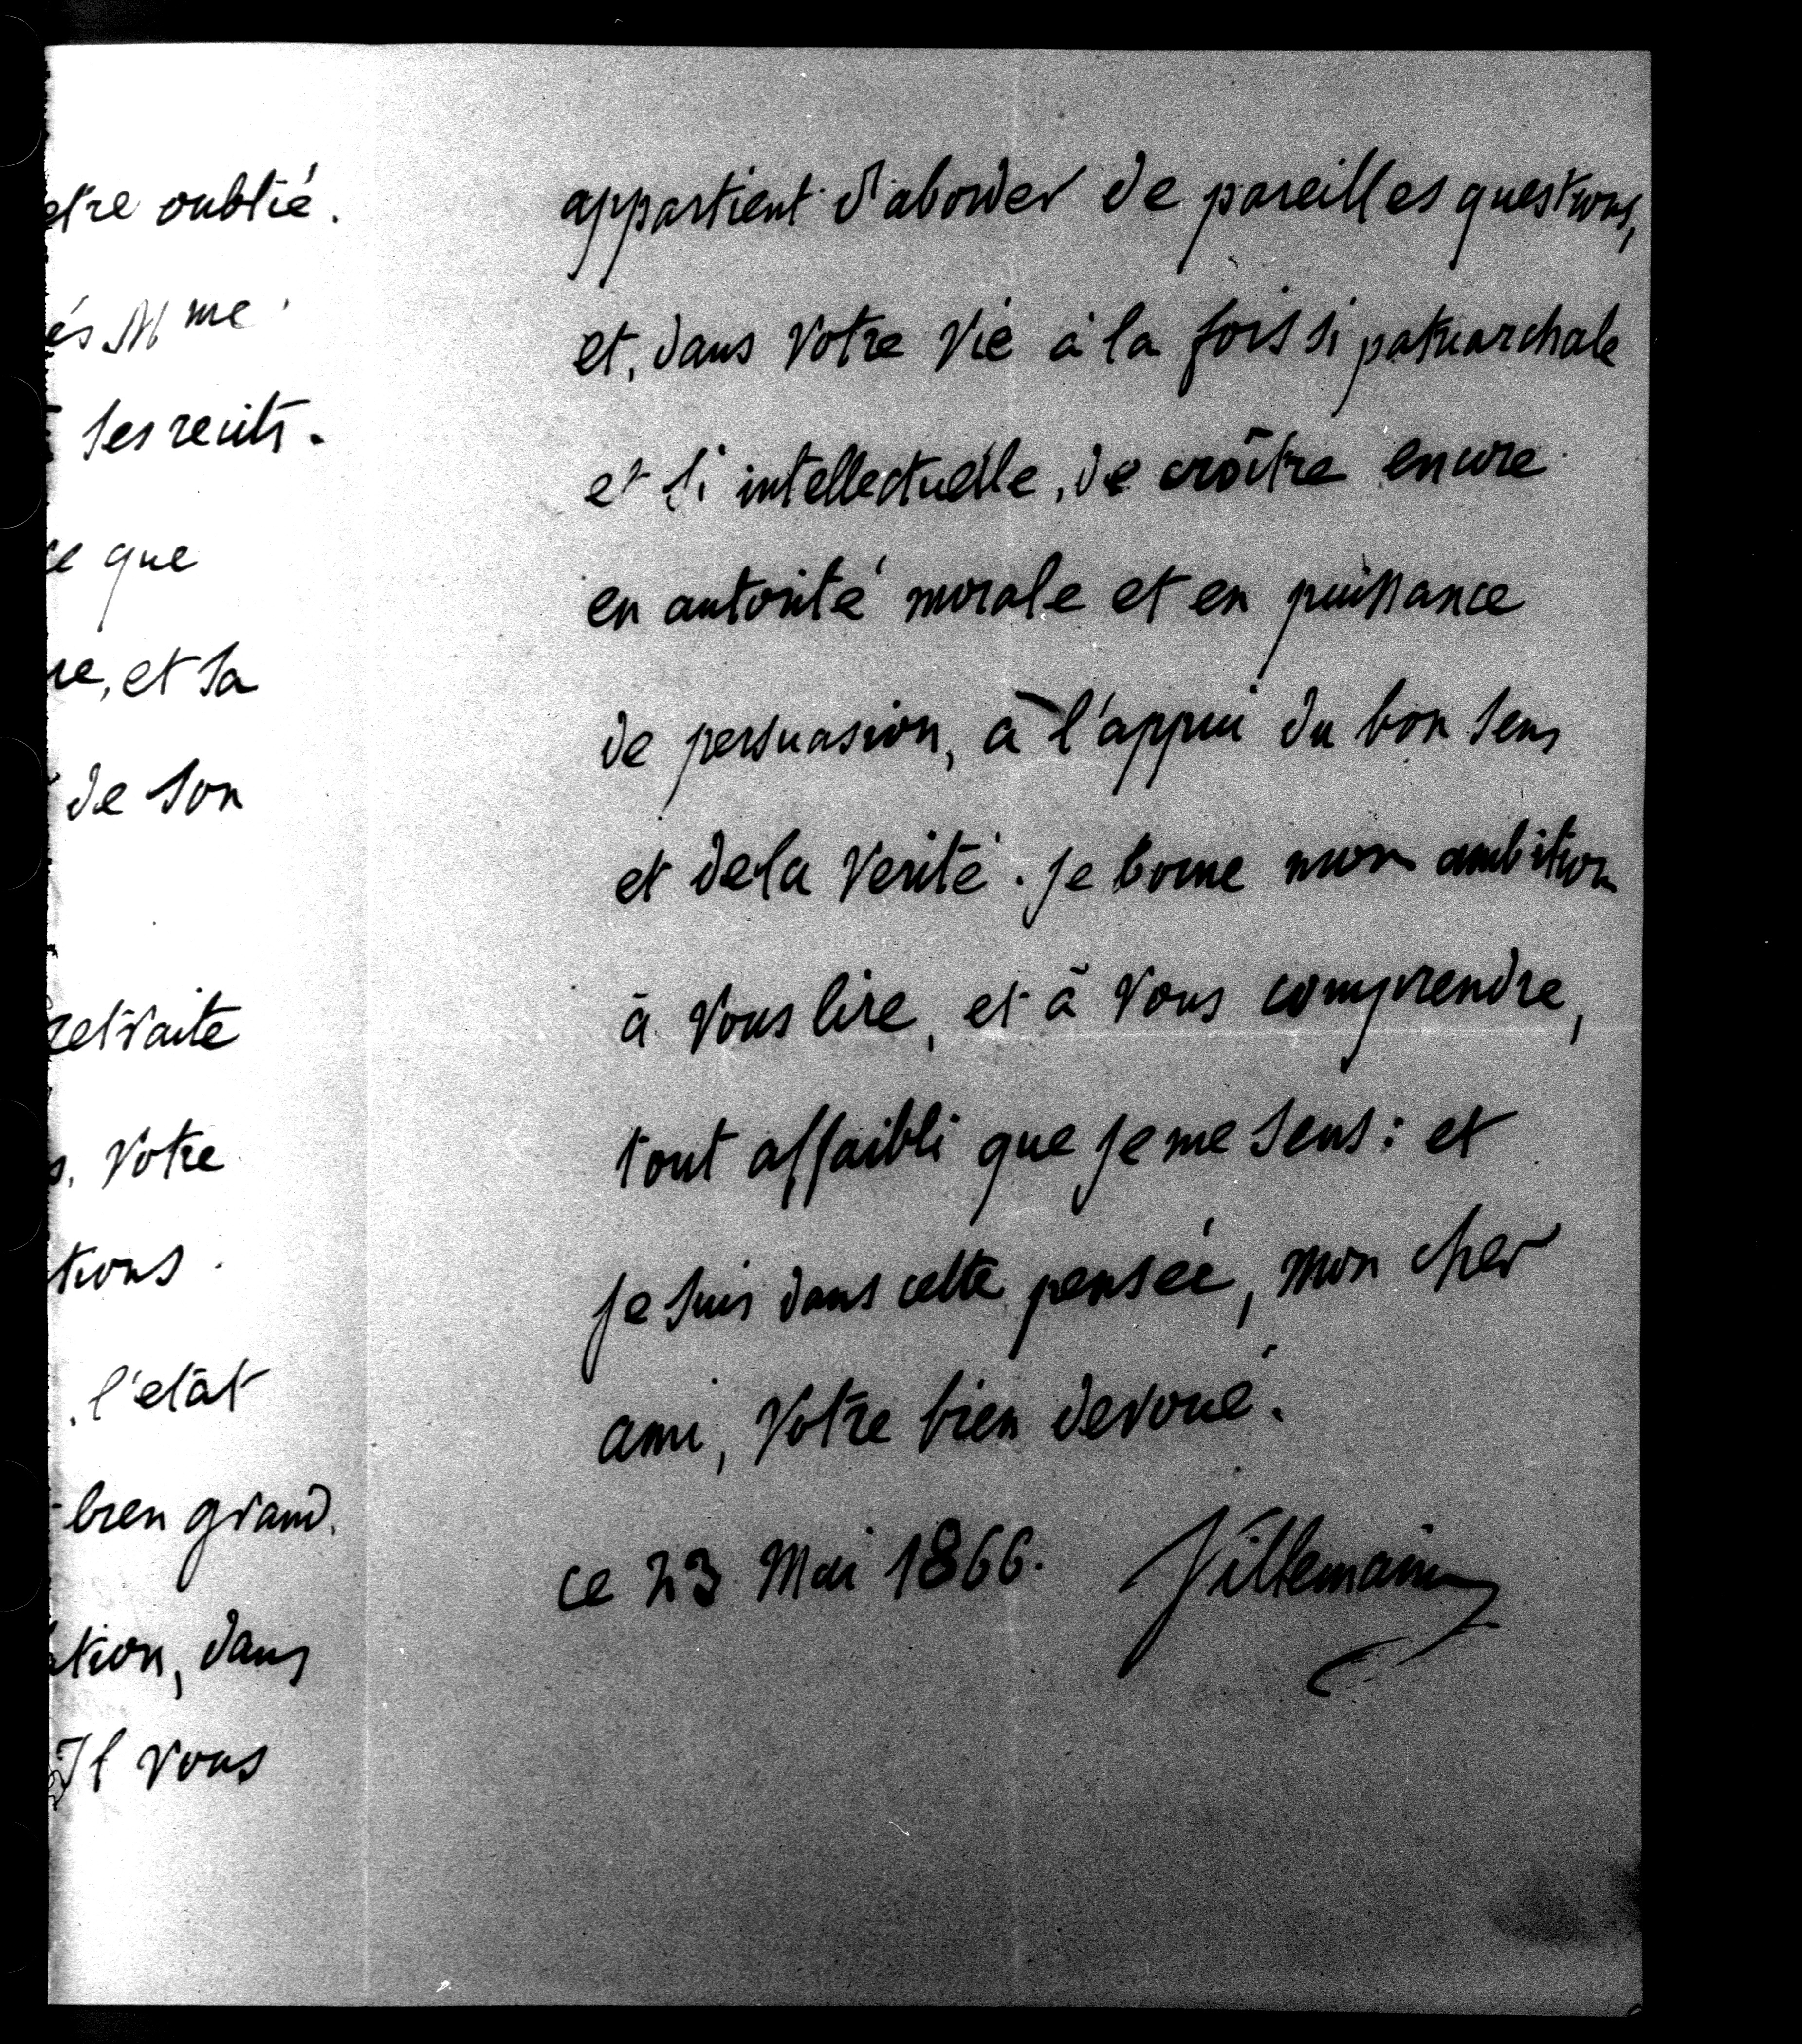 etre oublié.
és Mme
ses recits.
ce que
re, et sa
de son
retraite
s. Votre
tions.
. l'etât
bien grand.
ation, dans
Il vous
appartient d'aborder de pareilles questions,
et, dans votre vie à la fois si patriarchale
et si intellectuelle, de croître encore
en autorité morale et en puissance
de persuasion, à l'appui du bon sens
et de la Verité. je borne mon ambition
à vous lire, et à vous comprendre,
tout affaibli que je me sens : et
je suis dans cette pensée, mon cher
ami, Votre bien devoué.
ce 23 Mai 1866. Villemain